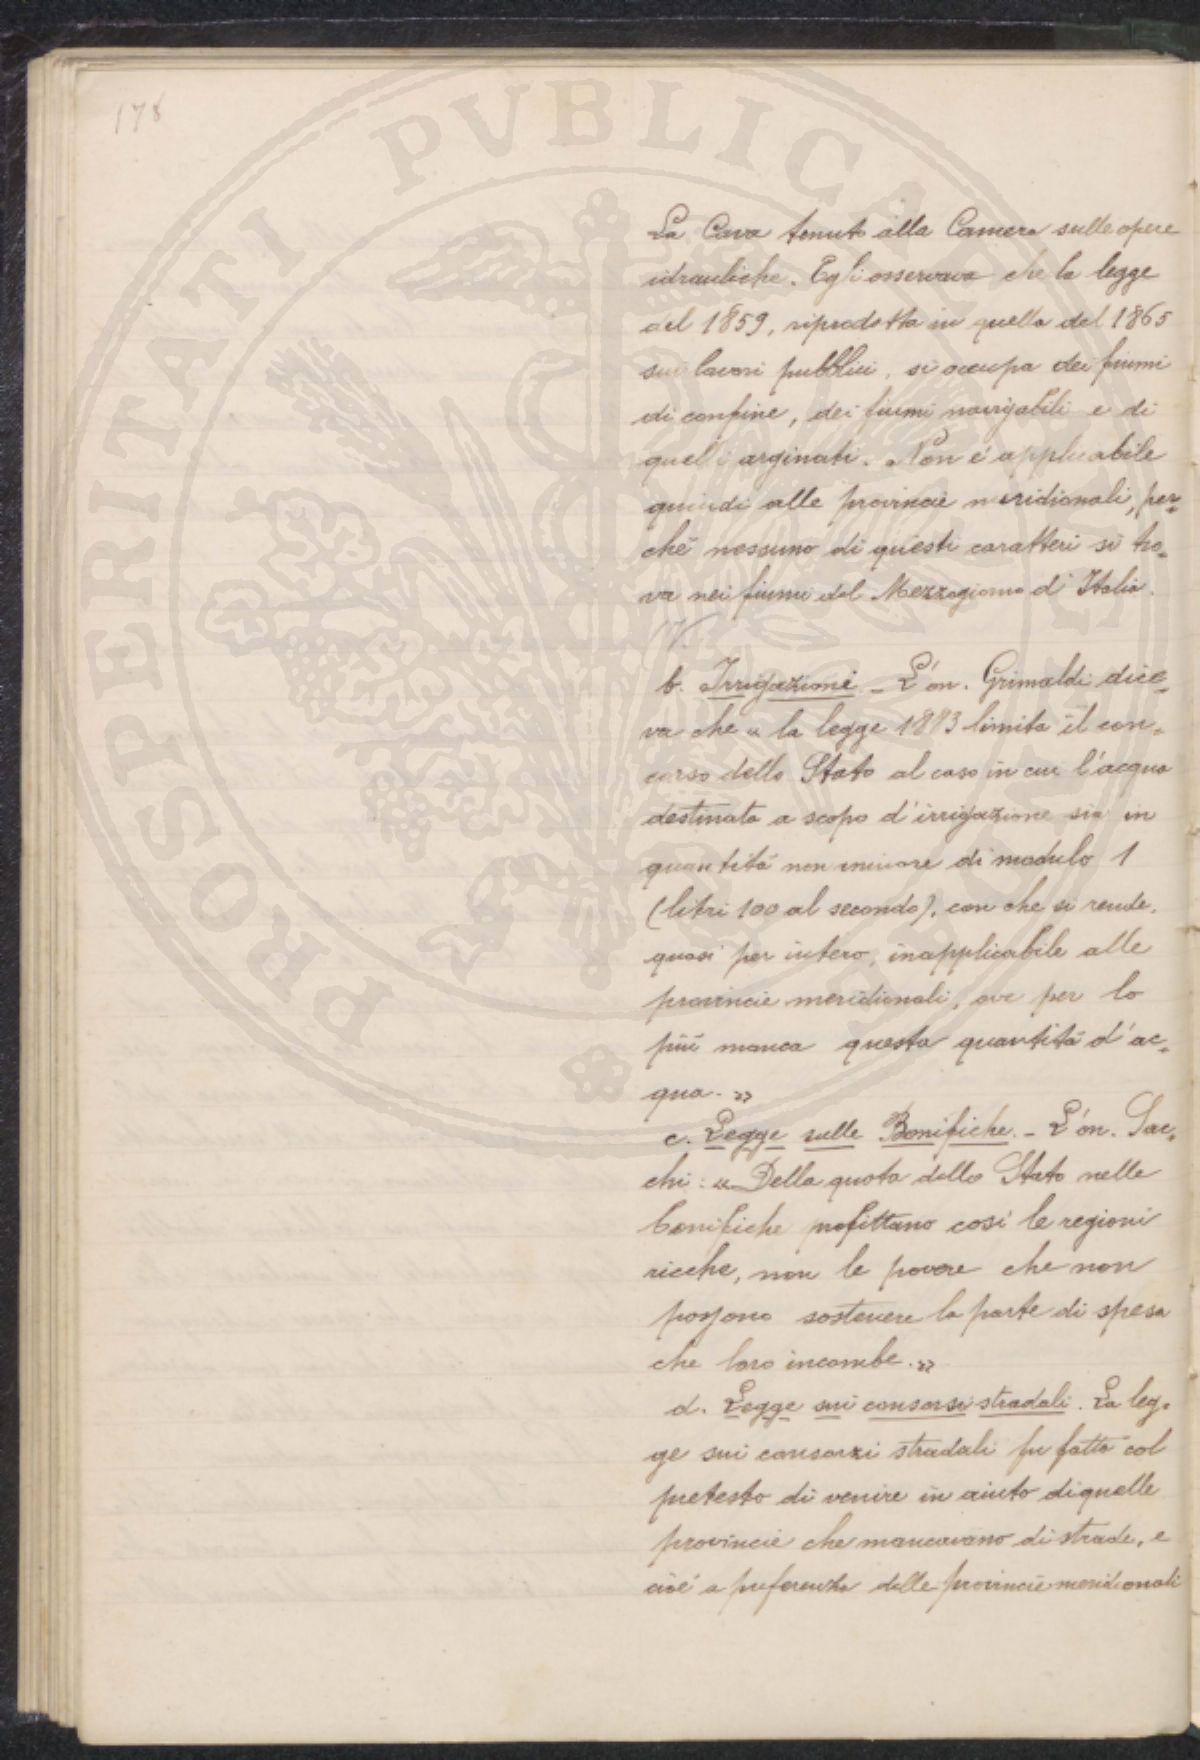 178
PROSPERITATI PVBLICAE
La Cava tenuto alla Camera sulle opere
idrauliche. Egli osservava che la legge
del 1859, riprodotta in quella del 1865
sui lavori pubblici, si occupa dei fiumi
di confine, dei fiumi navigabili e di
quelli arginati. Non è applicabile
quindi alle provincie meridionali, per=
chè nessuno di questi caratteri si tro=
va nei fiumi del Mezzogiorno d'Italia.
b. Irrigazioni - L'on. Grimaldi dice=
va che « la legge 1883 limita il con=
corso dello Stato al caso in cui l'acqua
destinata a scopo d'irrigazione sia in
quantità non minore di modulo 1
(litri 100 al secondo), con che si rende,
quasi per intero, inapplicabile alle
provincie meridionali, ove per lo
più manca questa quantità d'ac=
qua. »
c. Legge sulle Bonifiche. - L'on. Sac=
chi: « Della quota dello Stato nelle
bonifiche profittano così le regioni
ricche, non le povere che non
possono sostenere la parte di spesa
che loro incombe. »
d. Legge sui consorsi stradali. La leg=
ge sui consorzi stradali fu fatta col
pretesto di venire in aiuto di quelle
provincie che mancavano di strade, e
cioè a preferenza delle provincie meridionali